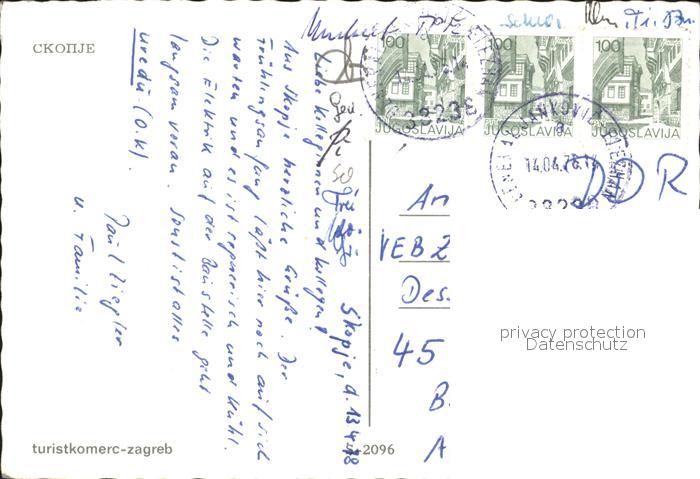 СКОПЈЕ
Skopje, d. 13.4.78
Liebe Kolleginnen und Kollegen!
Aus Skopje herzliche Grüße. Der
Frühlingsanfang läßt hier noch auf sich
warten und es ist regnerisch und kühl.
Die Elektrik auf der Baustelle geht
langsam voran. Sonst ist alles
u redu (O.K).
Paul Ziegler
u. Familie
100
JUGOSLAVIJA
100
JUGOSLAVIJA
100
JUGOSLAVIJA
14.04.78
DDR
An
VEB Z
Des.
45
B.
A
privacy protection
Datenschutz
turistkomerc-zagreb
2096